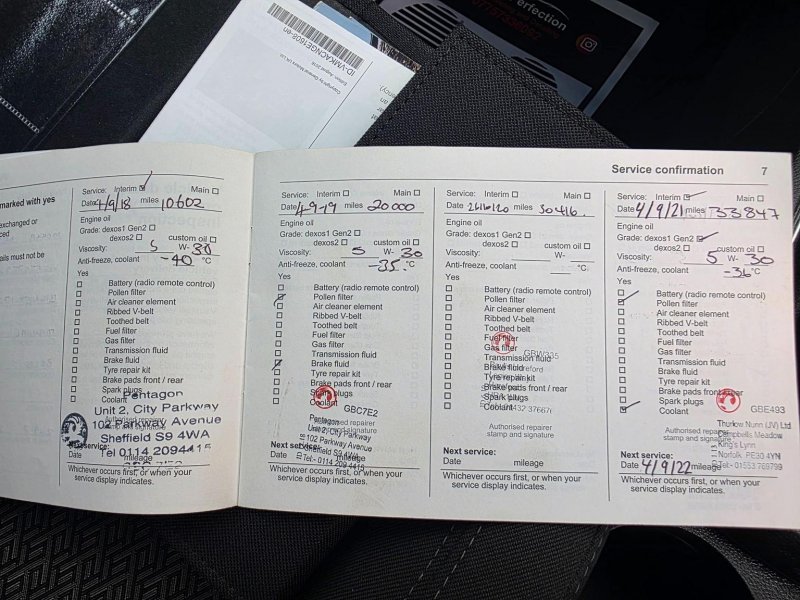 erfection
07757836082
ID-VMKACNGE1608-en
Edition: August 2016
Copyright by General Motors UK Ltd.
Service confirmation 7
marked with yes
exchanged or
ced
ails must not be
Service: Interim
Main
Date 4/9/18 miles 10602
Engine oil
Grade: dexos1 Gen2
dexos2
custom oil
Viscosity: 5 W- 30
Anti-freeze, coolant -40 °C
Yes
Battery (radio remote control)
Pollen filter
Air cleaner element
Ribbed V-belt
Toothed belt
Fuel filter
Gas filter
Transmission fluid
Brake fluid
Tyre repair kit
Brake pads front / rear
Spark plugs
Coolant
Pentagon
Unit 2, City Parkway
102 Parkway Avenue
Sheffield S9 4WA
Tel 0114 2094415
mileage
Whichever occurs first, or when your
service display indicates.
Service: Interim
Main
Date 4-9-19 miles 20000
Engine oil
Grade: dexos1 Gen2
dexos2
custom oil
Viscosity: 5 W- 30
Anti-freeze, coolant -35 °C
Yes
Battery (radio remote control)
Pollen filter
Air cleaner element
Ribbed V-belt
Toothed belt
Fuel filter
Gas filter
Transmission fluid
Brake fluid
Tyre repair kit
Brake pads front / rear
Spark plugs
Coolant
GBC7E2
Authorised repairer
stamp and signature
Pentagon
Unit 2, City Parkway
102 Parkway Avenue
Sheffield S9 4WA
Tel - 0114 209 4415
Next service:
Date mileage
Whichever occurs first, or when your
service display indicates.
Service: Interim
Main
Date miles 30416
Engine oil
Grade: dexos1 Gen2
dexos2
custom oil
Viscosity: W-
Anti-freeze, coolant °C
Yes
Battery (radio remote control)
Pollen filter
Air cleaner element
Ribbed V-belt
Toothed belt
Fuel filter
Gas filter
Transmission fluid
Brake fluid
Tyre repair kit
Brake pads front / rear
Spark plugs
Coolant
Authorised repairer
stamp and signature
Next service:
Date mileage
Whichever occurs first, or when your
service display indicates.
Service: Interim
Main
Date 4/9/21 miles 33847
Engine oil
Grade: dexos1 Gen2
dexos2
custom oil
Viscosity: 5 W- 30
Anti-freeze, coolant -36 °C
Yes
Battery (radio remote control)
Pollen filter
Air cleaner element
Ribbed V-belt
Toothed belt
Fuel filter
Gas filter
Transmission fluid
Brake fluid
Tyre repair kit
Brake pads front / rear
Spark plugs
Coolant
GBE493
Authorised repairer
stamp and signature
Thurlow Nunn (JV) Ltd
Campbells Meadow
King's Lynn
Norfolk PE30 4YN
Tel - 01553 769799
Next service:
Date 4/9/22 mileage
Whichever occurs first, or when your
service display indicates.